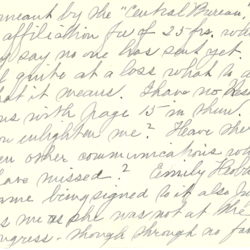 meant by the "Central Bureau"
affiliation fee of 25 frs. which
say no one has sent yet.
quite at a loss what to
hat it means. I have no
ns with page 15 in them.
ou enlighten me? Have the
en other communications wh
have missed? Emily
me being signed to it also
s me as she was not at the
ngress. though through no fa